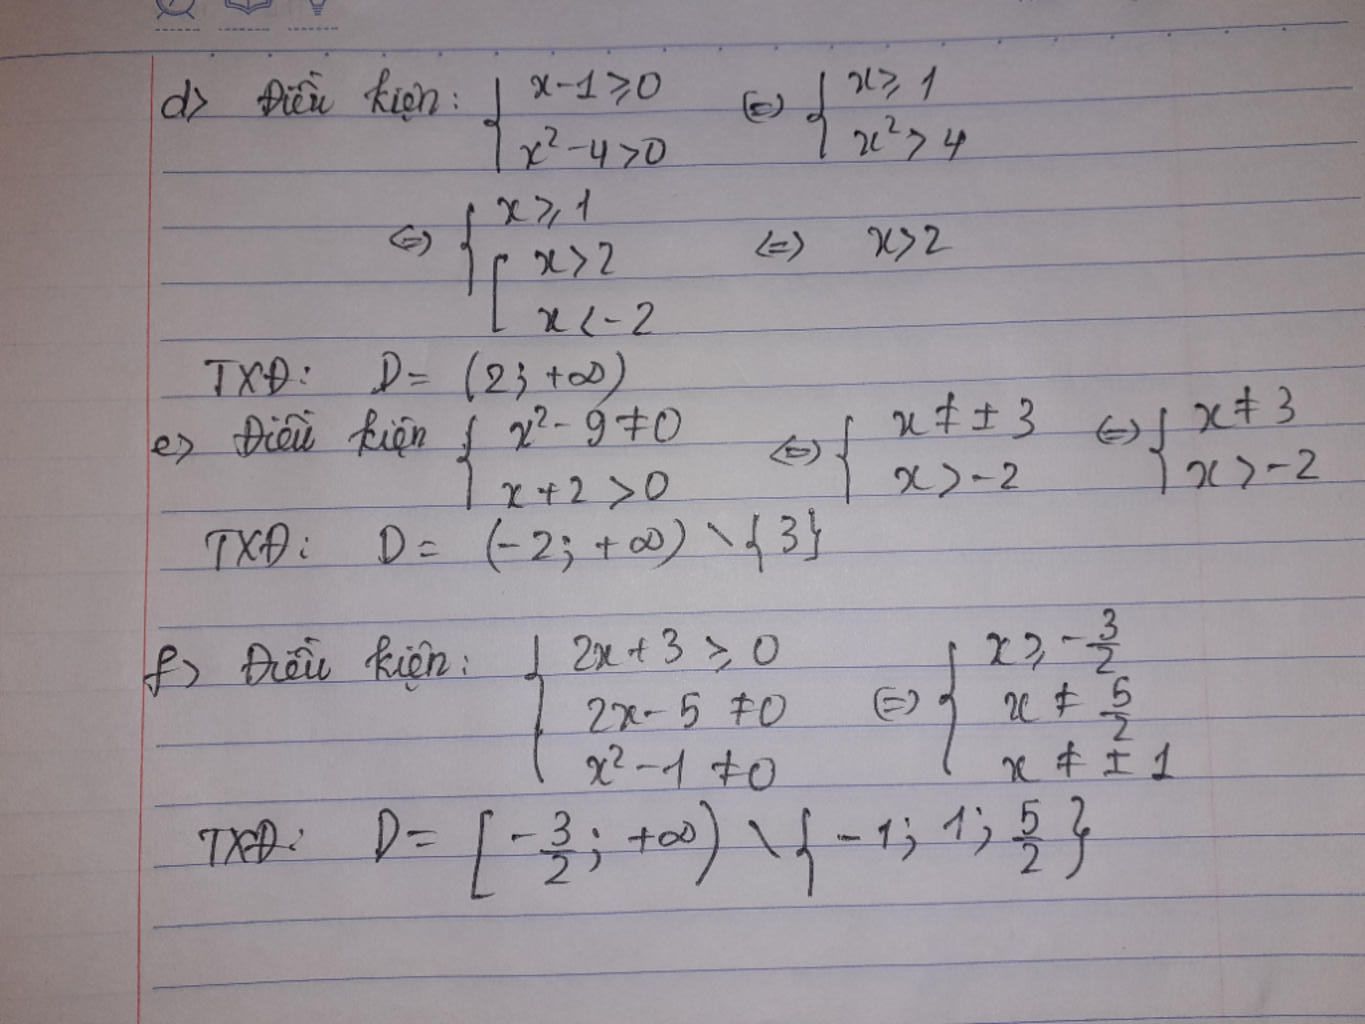 d> Điều kiện: { x-1⩾0 (=) { x⩾1
x²-4>0 x²>4
(=) { x⩾1
[ x>2 (=) x>2
x<-2
TXĐ: D= (2; +∞)
e> Điều kiện { x²-9≠0 (=) { x≠±3 (=) { x≠3
x+2>0 x>-2 x>-2
TXĐ: D= (-2; +∞) \ {3}
f> Điều kiện: { 2x+3⩾0 (=) { x⩾-3/2
2x-5≠0 x≠5/2
x²-1≠0 x≠±1
TXĐ: D= [-3/2; +∞) \ {-1; 1; 5/2}